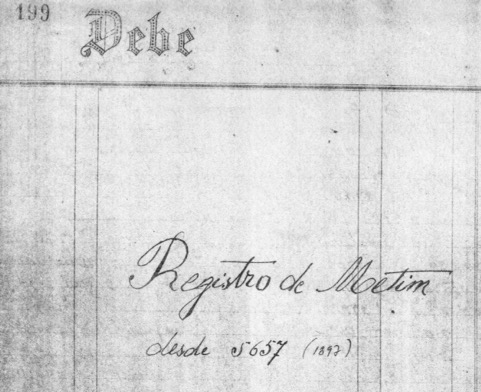 199
Debe
Registro de Metim
desde 5657 (1897)